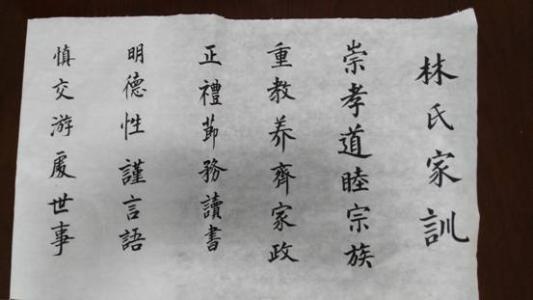 林氏家訓
崇孝道睦宗族
重教养齊家政
正禮節務讀書
明德性謹言語
慎交游處世事